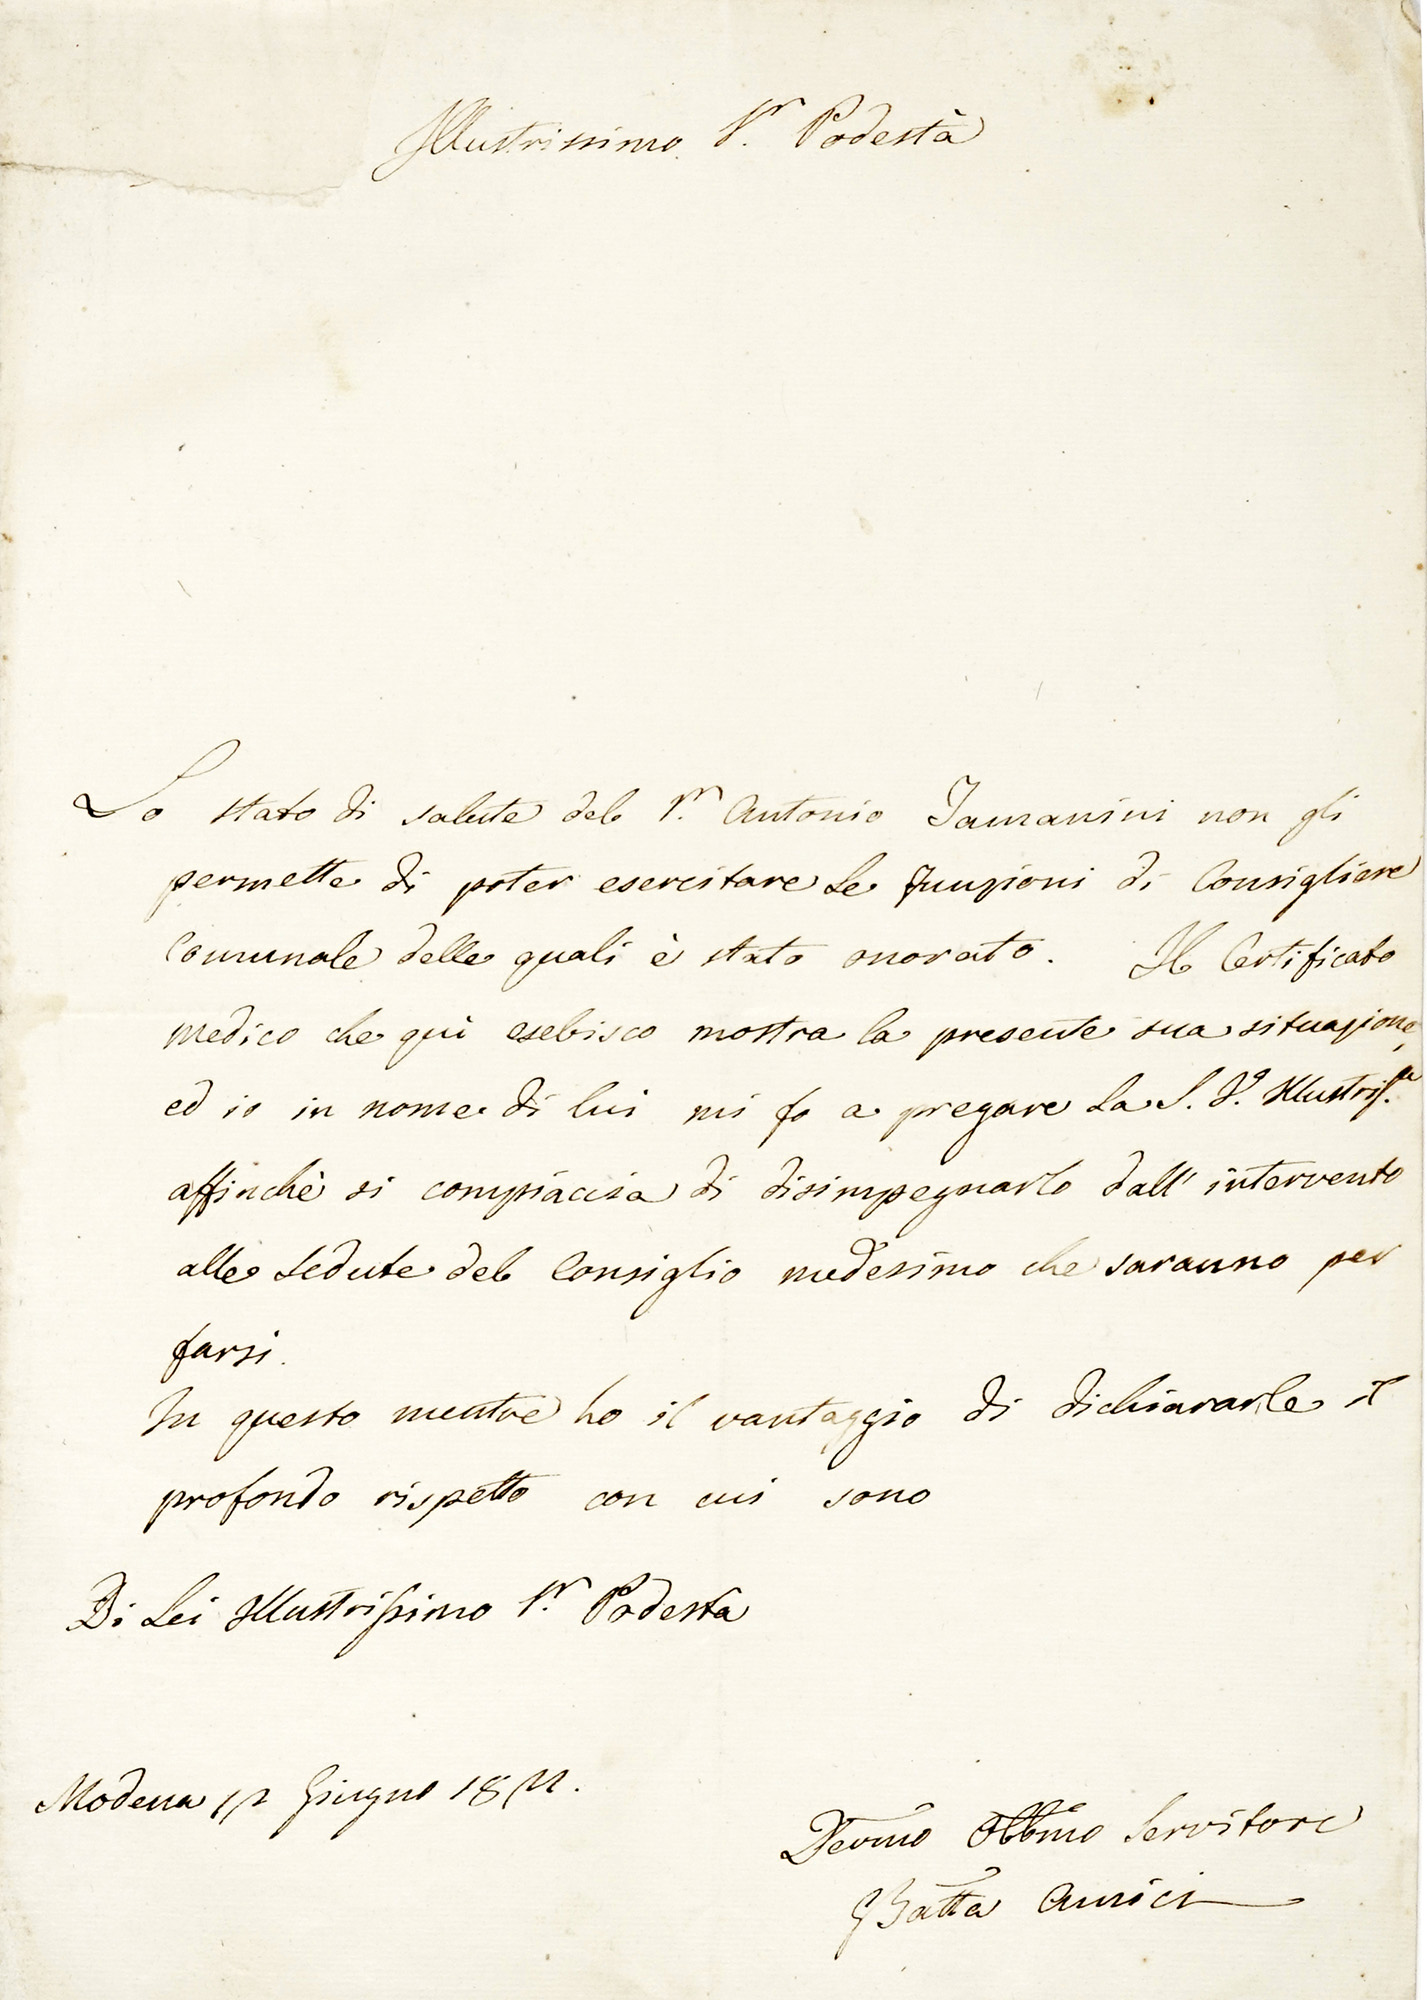 Illustrissimo Sr. Podestà
Lo stato di salute del Sr. Antonio non gli
permette di poter esercitare le funzioni di Consigliere
Comunale delle quali è stato onorato. Il Certificato
medico che quì esebisco mostra la presente sua situazione,
ed io in nome di lui mi fo a pregare la S. Va. Illustrissa.
affinchè si compiaccia di disimpegnarlo dall' intervento
alle sedute del Consiglio medesimo che saranno per
farsi.
In questo mentre ho il vantaggio di dichiararle il
profondo rispetto con cui sono
Di Lei Illustrissimo Sr. Podestà
Modena Giugno
Devmo Obbmo Servitore
GBatta Amici